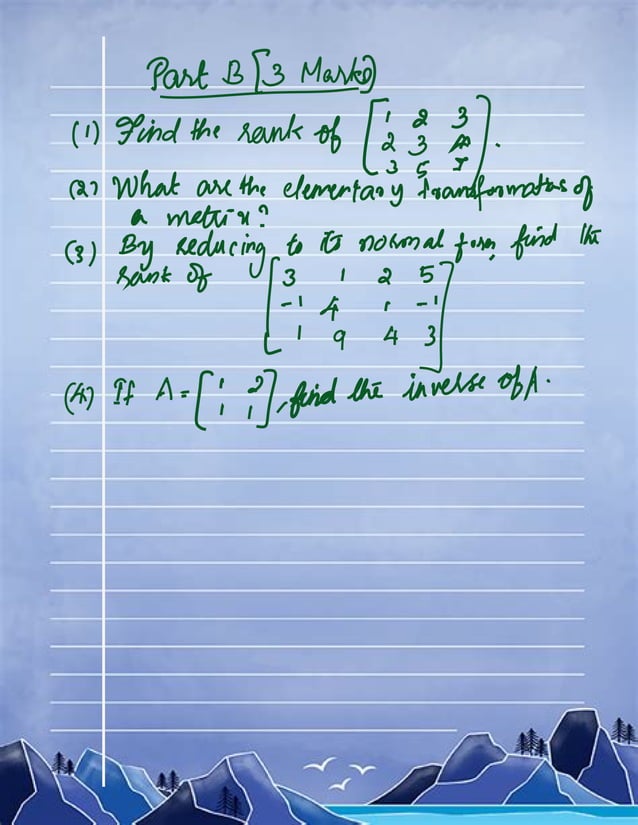 Part B [3 Marks]
(1) Find the rank of [1 2 3
2 3 4
3 5 7].
(2) What are the elementary transformations of
a matrix?
(3) By reducing to its normal form, find the
rank of [3 1 2 5
-1 4 1 -1
1 9 4 3]
(4) If A = [1 2
1 1], find the inverse of A.